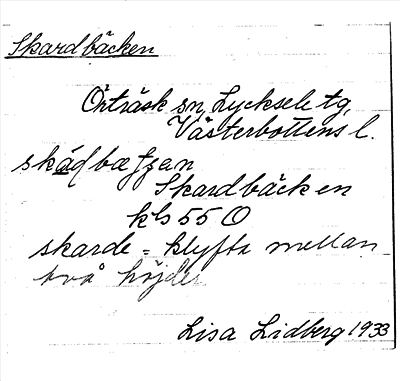 Skardbäcken
Örträsk sn, Lycksele tg,
Västerbottens l.
Skardbäcken
kbl 55 O
skarde = klyfta mellan
två höjder
Lisa Lidberg 1933